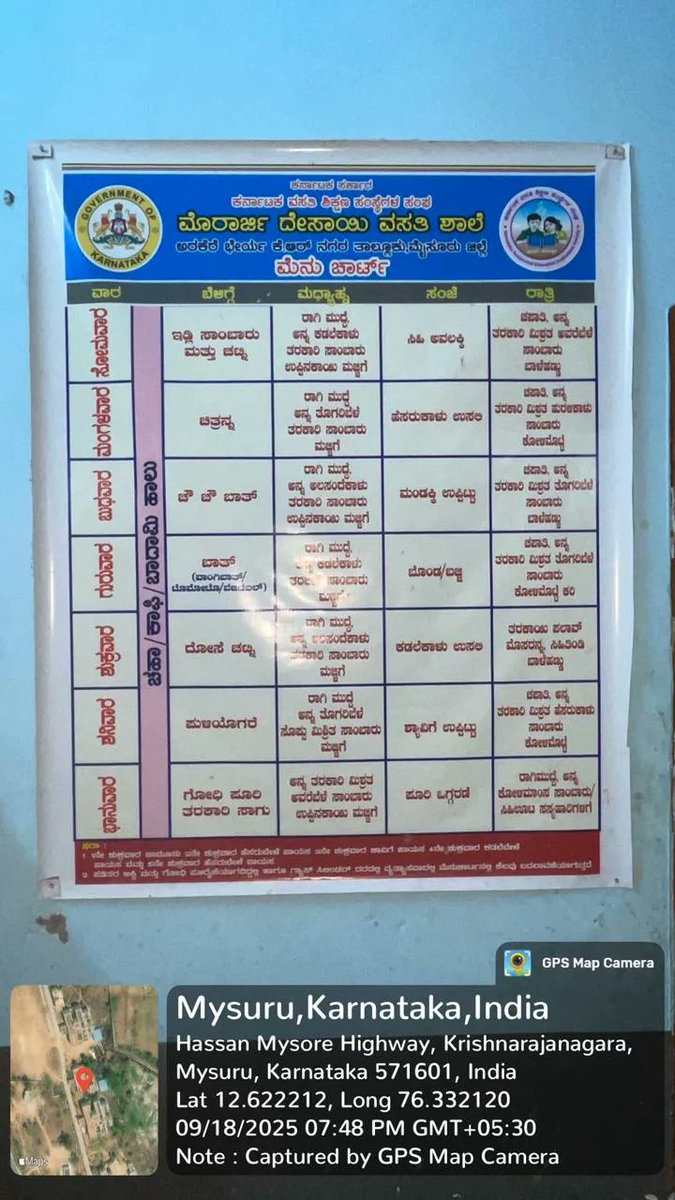 ಕರ್ನಾಟಕ ಸರ್ಕಾರ
ಕರ್ನಾಟಕ ವಸತಿ ಶಿಕ್ಷಣ ಸಂಸ್ಥೆಗಳ ಸಂಘ
ಮೊರಾರ್ಜಿ ದೇಸಾಯಿ ವಸತಿ ಶಾಲೆ
ಅರಕೆರೆ ಭೇರ್ಯ ಕೆ.ಆರ್ ನಗರ ತಾಲ್ಲೂಕು,ಮೈಸೂರು ಜಿಲ್ಲೆ
ಮೆನು ಚಾರ್ಟ್
GOVERNMENT OF
KARNATAKA
ವಾರ ಬೆಳಿಗ್ಗೆ ಮಧ್ಯಾಹ್ನ ಸಂಜೆ ರಾತ್ರಿ
ಚಹಾ/ಕಾಫಿ/ಬಾದಾಮಿ ಹಾಲು
ಸೋಮವಾರ
ಇಡ್ಲಿ ಸಾಂಬಾರು
ಮತ್ತು ಚಟ್ನಿ
ರಾಗಿ ಮುದ್ದೆ,
ಅನ್ನ ಕಡಲೆಕಾಳು
ತರಕಾರಿ ಸಾಂಬಾರು
ಉಪ್ಪಿನಕಾಯಿ ಮಜ್ಜಿಗೆ
ಸಿಹಿ ಅವಲಕ್ಕಿ
ಚಪಾತಿ, ಅನ್ನ
ತರಕಾರಿ ಮಿಶ್ರಿತ ಅವರೆಬೇಳೆ
ಸಾಂಬಾರು
ಬಾಳೆಹಣ್ಣು
ಮಂಗಳವಾರ
ಚಿತ್ರನ್ನ
ರಾಗಿ ಮುದ್ದೆ
ಅನ್ನ ತೊಗರಿಬೇಳೆ
ತರಕಾರಿ ಸಾಂಬಾರು
ಮಜ್ಜಿಗೆ
ಹೆಸರುಕಾಳು ಉಸಲಿ
ಚಪಾತಿ, ಅನ್ನ
ತರಕಾರಿ ಮಿಶ್ರಿತ ಹುರುಳಿಕಾಳು
ಸಾಂಬಾರು
ಕೋಳಿಮೊಟ್ಟೆ
ಬುಧವಾರ
ಚೌ ಚೌ ಬಾತ್
ರಾಗಿ ಮುದ್ದೆ,
ಅನ್ನ ಅಲಸಂದಕಾಳು
ತರಕಾರಿ ಸಾಂಬಾರು
ಉಪ್ಪಿನಕಾಯಿ ಮಜ್ಜಿಗೆ
ಮಂಡಕ್ಕಿ ಉಪ್ಪಿಟ್ಟು
ಚಪಾತಿ, ಅನ್ನ
ತರಕಾರಿ ಮಿಶ್ರಿತ ತೊಗರಿಬೇಳೆ
ಸಾಂಬಾರು
ಬಾಳೆಹಣ್ಣು
ಗುರುವಾರ
ಬಾತ್
(ವಾಂಗಿಬಾತ್/
ಟೊಮೋಟೊ/ವೆಜಿಟೆಬಲ್)
ರಾಗಿ ಮುದ್ದೆ,
ಅನ್ನ ಕಡಲೆಕಾಳು
ತರಕಾರಿ ಸಾಂಬಾರು
ಮಜ್ಜಿಗೆ
ಬೊಂಡ/ಬಜ್ಜಿ
ಚಪಾತಿ, ಅನ್ನ
ತರಕಾರಿ ಮಿಶ್ರಿತ ತೊಗರಿಬೇಳೆ
ಸಾಂಬಾರು
ಕೋಳಿಮೊಟ್ಟೆ ಕರಿ
ಶುಕ್ರವಾರ
ದೋಸೆ ಚಟ್ನಿ
ರಾಗಿ ಮುದ್ದೆ,
ಅನ್ನ ಅಲಸಂದಕಾಳು
ತರಕಾರಿ ಸಾಂಬಾರು
ಮಜ್ಜಿಗೆ
ಕಡಲೆಕಾಳು ಉಸಲಿ
ತರಕಾಯಿ ಪಲಾವ್
ಮೊಸರನ್ನ, ಸಿಹಿತಿಂಡಿ
ಬಾಳೆಹಣ್ಣು
ಶನಿವಾರ
ಪುಳಿಯೋಗರೆ
ರಾಗಿ ಮುದ್ದೆ
ಅನ್ನ ತೊಗರಿಬೇಳೆ
ಸೊಪ್ಪು ಮಿಶ್ರಿತ ಸಾಂಬಾರು
ಮಜ್ಜಿಗೆ
ಶ್ಯಾವಿಗೆ ಉಪ್ಪಿಟ್ಟು
ಚಪಾತಿ, ಅನ್ನ
ತರಕಾರಿ ಮಿಶ್ರಿತ ಹೆಸರುಕಾಳು
ಸಾಂಬಾರು
ಕೋಳಿಮೊಟ್ಟೆ
ಭಾನುವಾರ
ಗೋಧಿ ಪೂರಿ
ತರಕಾರಿ ಸಾಗು
ಅನ್ನ ತರಕಾರಿ ಮಿಶ್ರಿತ
ಅವರೆಬೇಳೆ ಸಾಂಬಾರು
ಉಪ್ಪಿನಕಾಯಿ ಮಜ್ಜಿಗೆ
ಪೂರಿ ಒಗ್ಗರಣೆ
ರಾಗಿಮುದ್ದೆ, ಅನ್ನ
ಕೋಳಿಮಾಂಸ ಸಾಂಬಾರು/
ಸಿಹಿಊಟ ಸಸ್ಯಹಾರಿಗಳಿಗೆ
ಷರಾ :
1. 1ನೇ ಶುಕ್ರವಾರ ಜಾಮೂನು 2ನೇ ಶುಕ್ರವಾರ ಹೆಸರುಬೇಳೆ ಪಾಯಸ 3ನೇ ಶುಕ್ರವಾರ ಶಾವಿಗೆ ಪಾಯಸ 4ನೇ ಶುಕ್ರವಾರ ಕಡಲೆಬೇಳೆ
ಪಾಯಸ ಮತ್ತು 5ನೇ ಶುಕ್ರವಾರ ಹೆಸರುಬೇಳೆ ಪಾಯಸ
2. ಪಡಿತರ ಅಕ್ಕಿ ಮತ್ತು ಗೋಧಿ ಪೂರೈಕೆಯಾಗದಿದ್ದಲ್ಲಿ ಹಾಗೂ ಗ್ಯಾಸ್ ಸಿಲಿಂಡರ್ ದರದಲ್ಲಿ ವ್ಯತ್ಯಾಸವಾದಲ್ಲಿ ಮೆನುಚಾರ್ಟನಲ್ಲಿ ಕೆಲವು ಬದಲಾವಣೆಯಾಗುತ್ತದೆ
GPS Map Camera
Mysuru,Karnataka,India
Hassan Mysore Highway, Krishnarajanagara,
Mysuru, Karnataka 571601, India
Lat 12.622212, Long 76.332120
09/18/2025 07:48 PM GMT+05:30
Note : Captured by GPS Map Camera
Maps